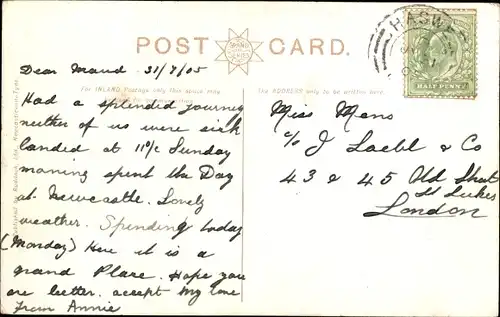 POST CARD.
HASWELL
HALF PENNY
For INLAND Postage only this space may
be used for correspondence.
The ADDRESS only to be written here.
Dear Maud 31/7/05
Had a splendid journey
neither of us were sick
landed at 11 o/c Sunday
morning spent the Day
at Newcastle. Lovely
weather. Spending today
(Monday) Here it is a
grand Place. Hope you
are better. accept My love
From Annie
Miss Mens
c/o J Loebl & Co
43 & 45 Old Street
St Lukes
London